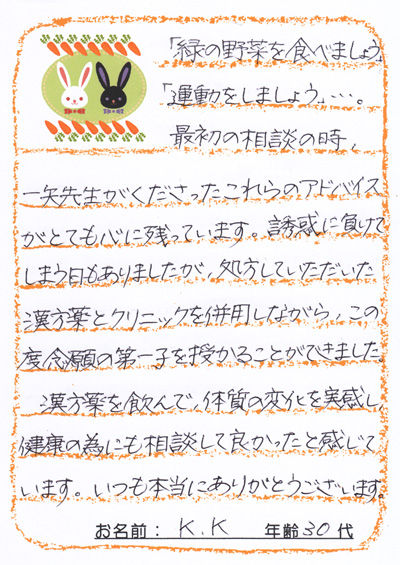 「緑の野菜を食べましょう」
「運動をしましょう」…。
最初の相談の時,
一矢先生がくださったこれらのアドバイス
がとても心に残っています。誘惑に負けて
しまう日もありましたが,処方していただいた
漢方薬とクリニックを併用しながら,この
度念願の第一子を授かることができました。
漢方薬を飲んで,体質の変化を実感し,
健康の為にも相談して良かったと感じて
います。いつも本当にありがとうございます。
お名前: K.K 年齢30代